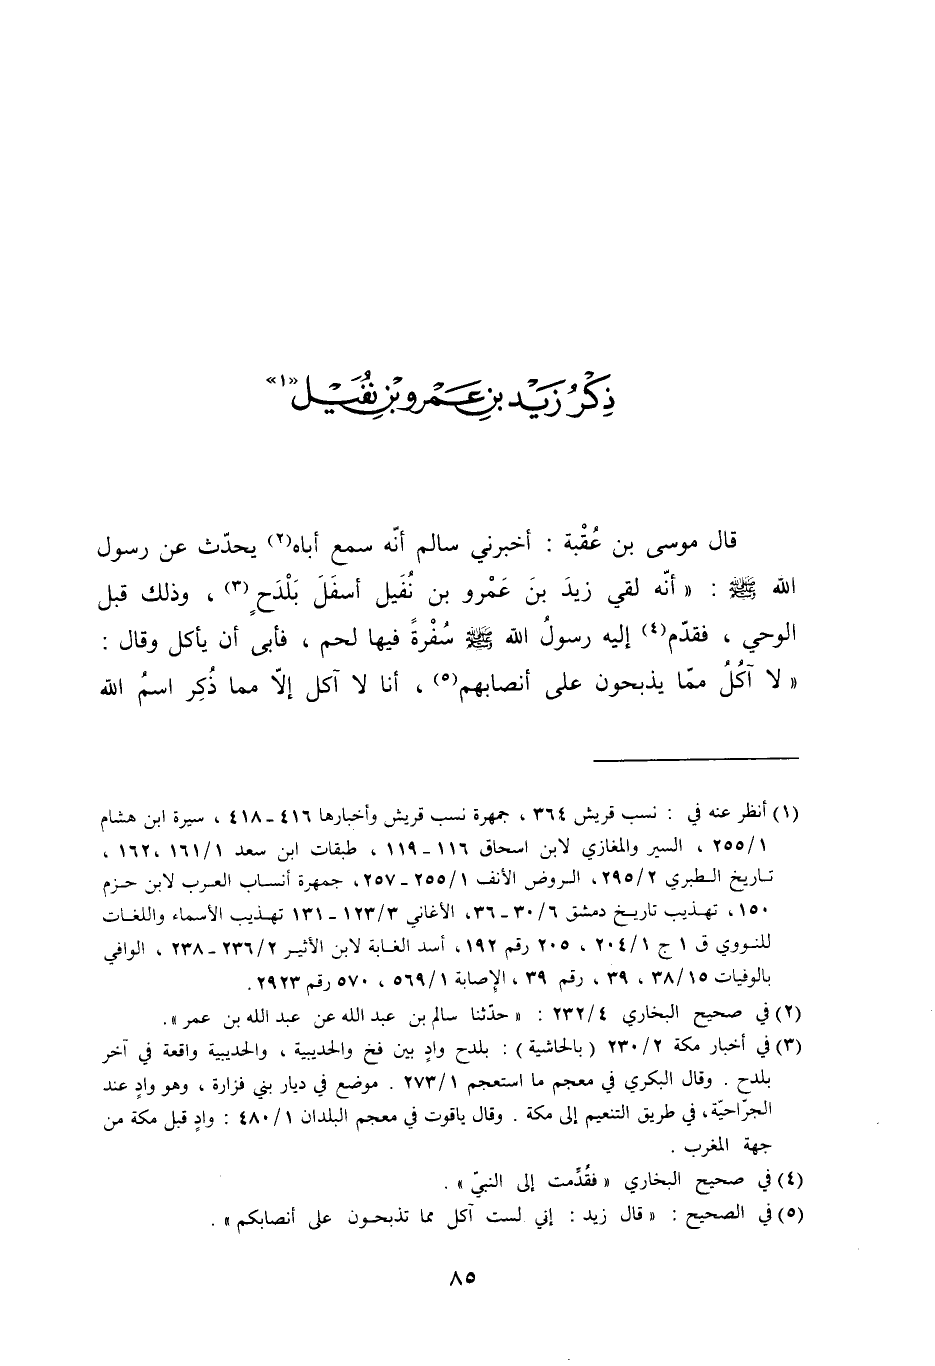 ذِكْرُ زَيْد بنِ عَمْرو بْنِ نُفَيْل «١»
قال موسى بن عُقْبة : أخبرني سالم أنّه سمع أباه(٢) يحدّث عن رسول
الله ﷺ : « أنّه لقي زيدَ بنَ عَمْرو بن نُفَيل أسفَلَ بَلْدَح(٣) ، وذلك قبل
الوحي ، فقدّم(٤) إليه رسولُ الله ﷺ سُفْرةً فيها لحم ، فأبى أن يأكل وقال :
« لا آكُلُ ممّا يذبحون على أنصابهم(٥) ، أنا لا آكل إلاّ مما ذُكِر اسمُ الله
(١) أنظر عنه في : نسب قريش ٣٦٤ ، جمهرة نسب قريش وأخبارها ٤١٦ ـ ٤١٨ ، سيرة ابن هشام
٢٥٥/١ ، السير والمغازي لابن اسحاق ١١٦ ـ ١١٩ ، طبقات ابن سعد ١٦١/١ ، ١٦٢ ،
تاريخ الطبري ٢٩٥/٢ ، الروض الأنف ٢٥٥/١ ـ ٢٥٧ ، جمهرة أنساب العرب لابن حزم
١٥٠ ، تهذيب تاريخ دمشق ٣٠/٦ ـ ٣٦ ، الأغاني ١٢٣/٣ ـ ١٣١ تهذيب الأسماء واللغات
للنووي ق ١ ج ٢٠٤/١ ، ٢٠٥ رقم ١٩٢ ، أسد الغابة لابن الأثير ٢٣٦/٢ ـ ٢٣٨ ، الوافي
بالوفيات ٣٨/١٥ ، ٣٩ ، رقم ٣٩ ، الإصابة ٥٦٩/١ ، ٥٧٠ رقم ٢٩٢٣ .
(٢) في صحيح البخاري ٢٣٢/٤ : « حدّثنا سالم بن عبد الله عن عبد الله بن عمر » .
(٣) في أخبار مكة ٢٣٠/٢ ( بالحاشية ) : بلدح وادٍ بين فخ والحديبية ، والحديبية واقعة في آخر
بلدح . وقال البكري في معجم ما استعجم ٢٧٣/١ . موضع في ديار بني فزارة ، وهو وادٍ عند
الجرّاحيّة ، في طريق التنعيم إلى مكة . وقال ياقوت في معجم البلدان ٤٨٠/١ : وادٍ قبل مكة من
جهة المغرب .
(٤) في صحيح البخاري « فقُدِّمت إلى النبيّ » .
(٥) في الصحيح : « قال زيد : إني لست آكل مما تذبحون على أنصابكم » .
٨٥